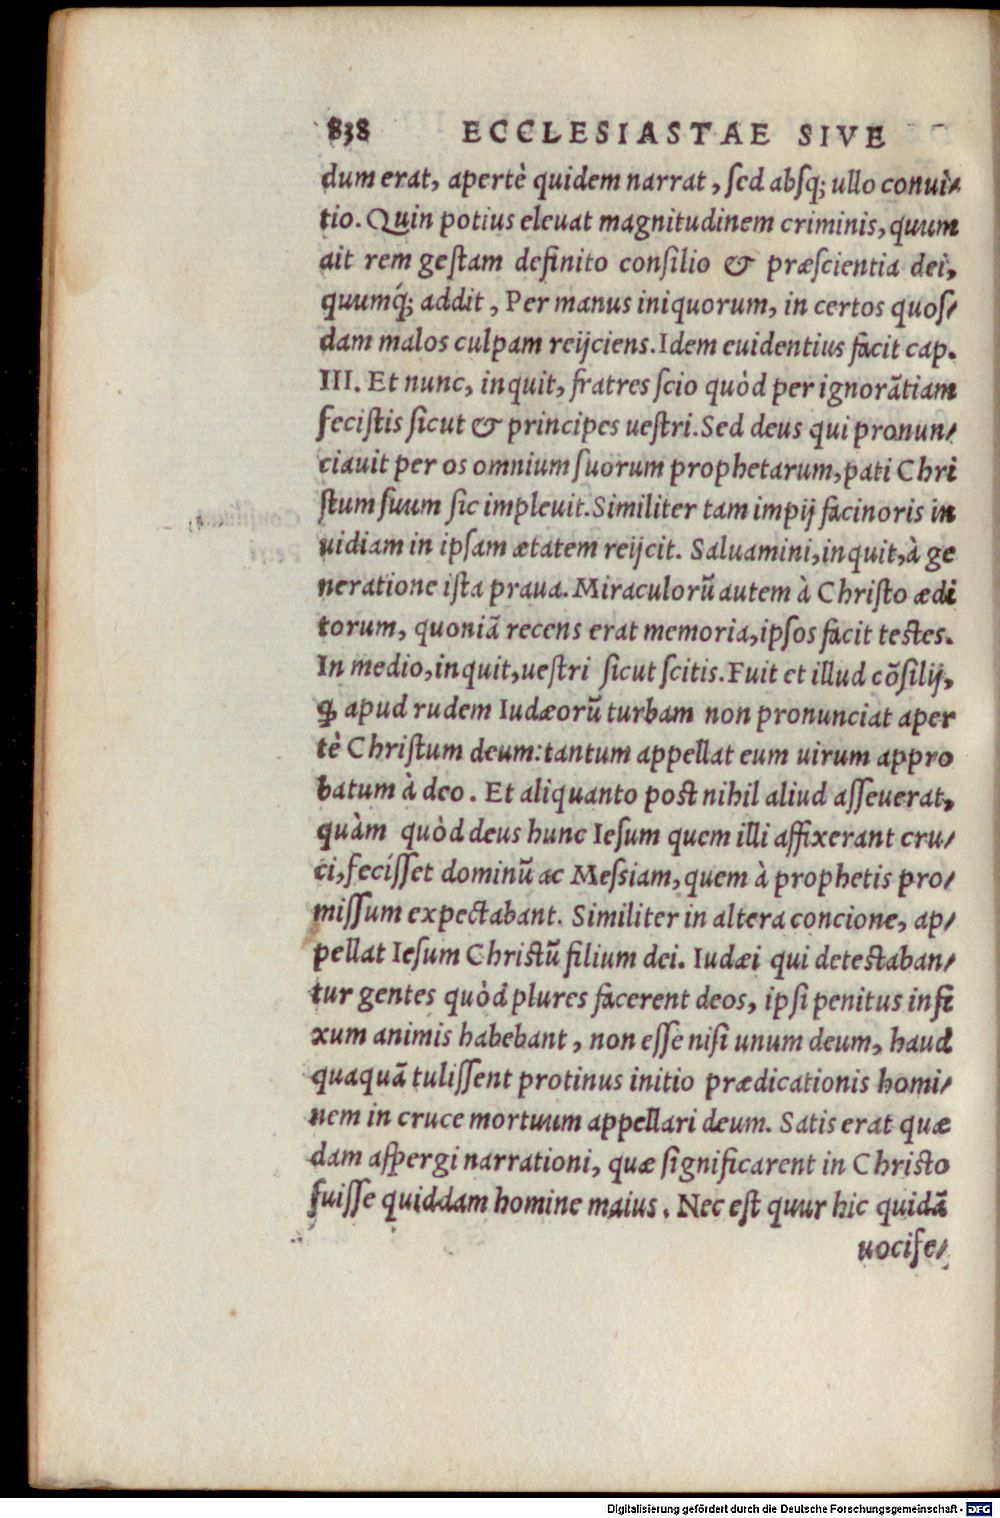 838 ECCLESIASTAE SIVE
dum erat, apertè quidem narrat, sed absq; ullo conui/
tio. Quin potius eleuat magnitudinem criminis, quum
ait rem gestam definito consilio & præscientia dei,
quumq́; addit, Per manus iniquorum, in certos quos/
dam malos culpam reijciens. Idem euidentius facit cap.
III. Et nunc, inquit, fratres scio quòd per ignorãtiam
fecistis sicut & principes uestri. Sed deus qui pronun/
ciauit per os omnium suorum prophetarum, pati Chri
stum suum sic impleuit. Similiter tam impij facinoris in
uidiam in ipsam ætatem reijcit. Saluamini, inquit, à ge
neratione ista praua. Miraculorũ autem à Christo ædi
torum, quoniã recens erat memoria, ipsos facit testes.
In medio, inquit, uestri sicut scitis. Fuit et illud cõsilij,
ꝙ apud rudem Iudæorũ turbam non pronunciat aper
tè Christum deum: tantum appellat eum uirum appro
batum à deo. Et aliquanto post nihil aliud asseuerat,
quàm quòd deus hunc Iesum quem illi affixerant cru/
ci, fecisset dominũ ac Messiam, quem à prophetis pro/
missum expectabant. Similiter in altera concione, ap/
pellat Iesum Christũ filium dei. Iudæi qui detestaban/
tur gentes quòd plures facerent deos, ipsi penitus infi
xum animis habebant, non esse nisi unum deum, haud
quaquã tulissent protinus initio prædicationis homi/
nem in cruce mortuum appellari deum. Satis erat quæ
dam aspergi narrationi, quæ significarent in Christo
fuisse quiddam homine maius. Nec est quur hic quidã
uocife/
Digitalisierung gefördert durch die Deutsche Forschungsgemeinschaft - DFG